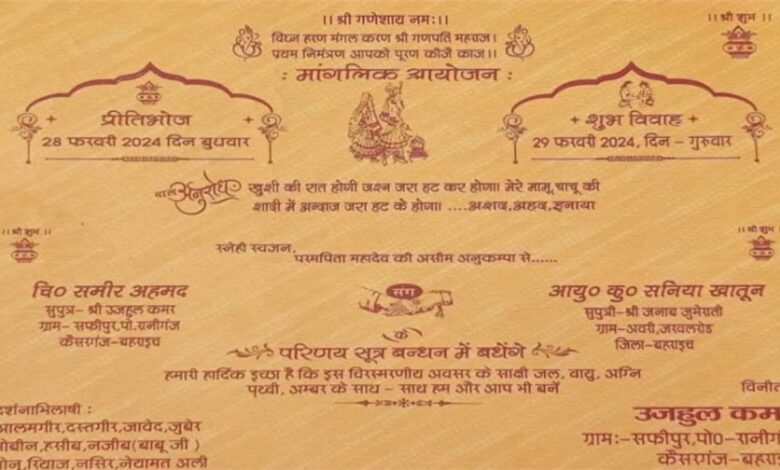 ।। श्री गणेशाय नमः।।
विघ्न हरण मंगल करण श्री गणपति महराज।
प्रथम निमंत्रण आपको पूरण कीजै काज।।
।। श्री शुभ ।।
: मांगलिक आयोजन :
प्रीतिभोज
28 फरवरी 2024 दिन बुधवार
शुभ विवाह
29 फरवरी 2024, दिन - गुरुवार
बाल अनुरोध
खुशी की रात होगी जश्न जरा हट कर होगा। मेरे मामू,चाचू की
शादी में अन्दाज जरा हट के होगा। ....अशद,अहद,इनाया
।। श्री शुभ ।।
।। श्री शुभ ।।
स्नेही स्वजन,
परमपिता महादेव की असीम अनुकम्पा से......
चि० समीर अहमद
सुपुत्र- श्री उजहुल कमर
ग्राम- सफीपुर,पो.रानीगंज
कैसरगंज-बहराइच
संग
आयु० कु० सनिया खातून
सुपुत्री-श्री जनाब जुमेराती
ग्राम-अवरी,जरवलरोड
जिला-बहराइच
के
परिणय सूत्र बन्धन में बधेंगे
हमारी हार्दिक इच्छा है कि इस चिरस्मरणीय अवसर के साक्षी जल, वायु, अग्नि
पृथ्वी, अम्बर के साथ - साथ हम और आप भी बनें
दर्शनाभिलाषी :
आलमगीर,दस्तगीर,जावेद,जुबेर
मोबीन,हसीब,नजीब(बाबू जी )
रियाज,नसिर,नेयामत अली
विनीत
उजहुल कमर
ग्राम:-सफीपुर,पो०-रानीगं
कैसरगंज-बहरा